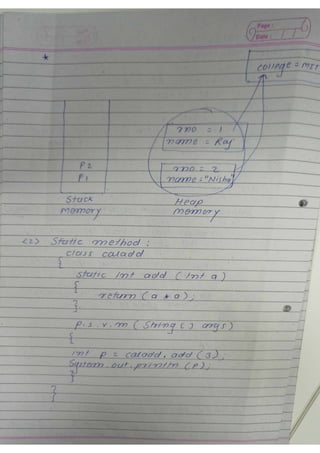 Page:
Date:
*
college = MIT
rno = 1
name = Raj
rno = 2
name = "Nisha"
P2
P1
Stack
memory
Heap
memory
(2) Static method :
class caladd
{
static int add (int a)
{
return (a * a);
}
p.s.v.m (String () args)
{
int p = caladd.add (3);
System.out.println (p);
}
}